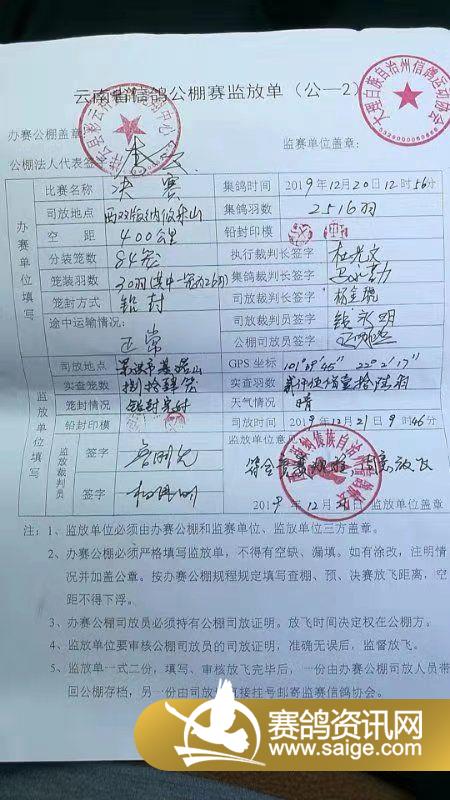 云南省信鸽公棚赛监放单（公一2）
大理白族自治州信鸽运动协会
办赛公棚盖章：
监赛单位盖章：
公棚法人代表签
办赛单位填写
比赛名称 决赛 集鸽时间 2019年12月20日12时56分
司放地点 西双版纳 集鸽羽数 2516羽
空距 400公里 铅封印模
分装笼数 84笼 执行裁判长签字
笼装羽数 30羽(其中一笼为26羽) 集鸽裁判长签字
笼封方式 铅封 司放裁判长签字
途中运输情况： 司放裁判员签字
正常 公棚司放员签字
监放单位填写
司放地点 GPS 坐标 101°
实查笼数 捌拾肆笼 实查羽数 贰仟伍佰壹拾陆羽
笼封情况 铅封完好 天气情况 晴
铅封印模 司放时间 2019年12月21日9时46分
监放裁判员
签字
监放单位意见
符合竞赛规程，同意放飞
签字
2019年12月21日 监放单位盖章
注：1、监放单位必须由办赛公棚和监赛单位、监放单位三方盖章。
2、办赛公棚必须严格填写监放单，不得有空缺、漏填。如有涂改，注明情
况并加盖公章。按办赛公棚规程规定填写查棚、预、决赛放飞距离，空
距不得下浮。
3、办赛公棚司放员必须持有公棚司放证明。放飞时间决定权在公棚方。
4、监放单位要审核公棚司放员的司放证明，准确无误后，监督放飞。
5、监放单一式二份，填写、审核放飞完毕后，一份由办赛公棚司放人员带
回公棚存档，另一份由司放 直接挂号邮寄监赛信鸽协会。
赛鸽资讯网
www.saige.com